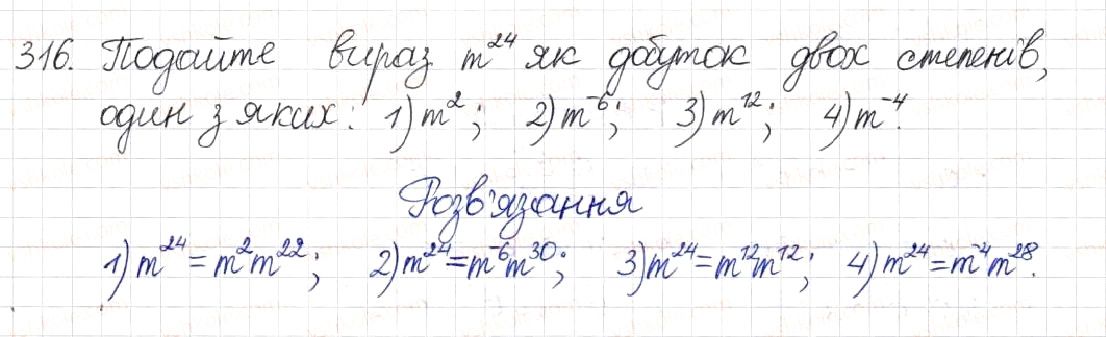 316. Подайте вираз m²⁴ як добуток двох степенів,
один з яких: 1) m²; 2) m⁻⁶; 3) m¹²; 4) m⁻⁴.
Розв'язання
1) m²⁴ = m²m²²; 2) m²⁴ = m⁻⁶m³⁰; 3) m²⁴ = m¹²m¹²; 4) m²⁴ = m⁻⁴m²⁸.